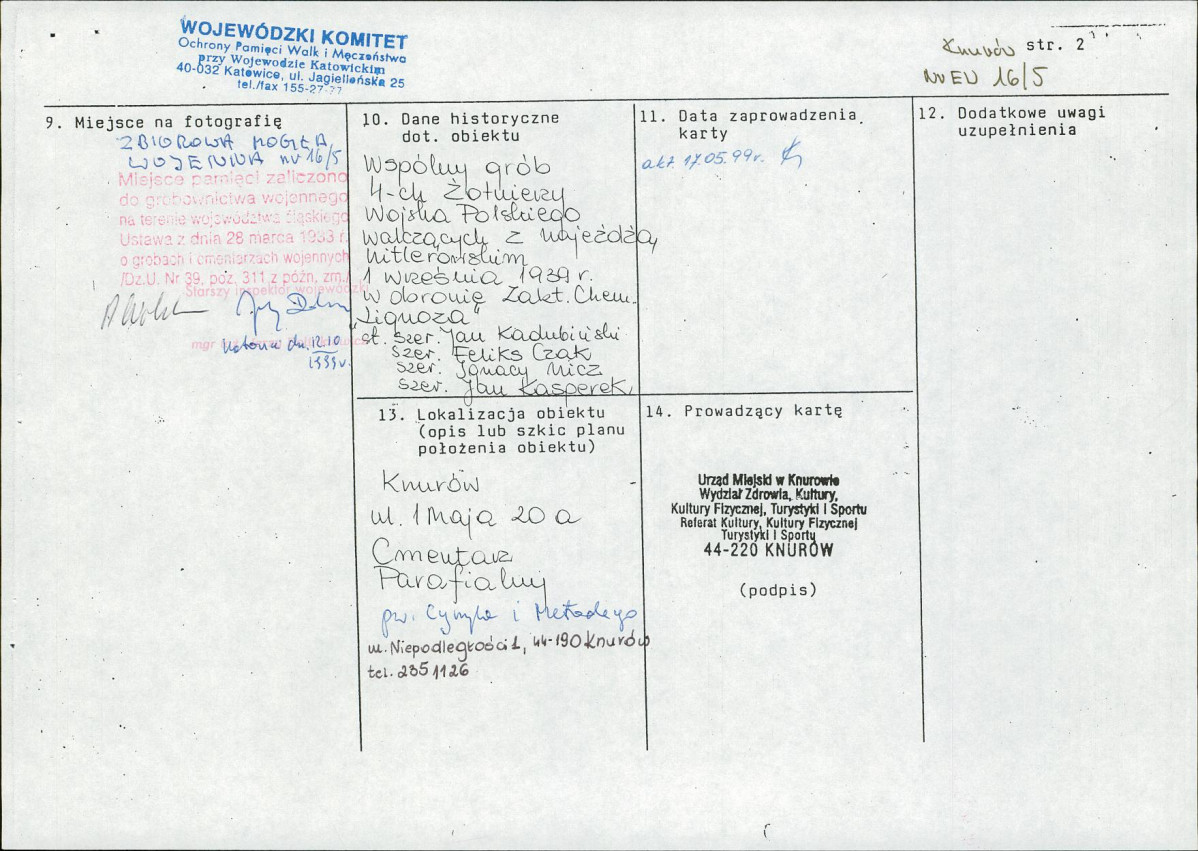 WOJEWÓDZKI KOMITET
Ochrony Pamięci Walk i Męczeństwa
przy Wojewodzie Katowickim
40-032 Katowice, ul. Jagiellońska 25
tel./fax 155-27-77
Knurów str. 2
nr EW 16/5
9. Miejsce na fotografię
ZBIOROWA MOGIŁA
WOJENNA nr 16/5
Miejsce pamięci zaliczono
do grobownictwa wojennego
na terenie województwa śląskiego
Ustawa z dnia 28 marca 1933 r.
o grobach i cmentarzach wojennych
/Dz.U. Nr 39, poz. 311 z późn. zm./
Starszy inspektor wojewódzki
mgr
Katowice dn. 12.10
1999r.
10. Dane historyczne
dot. obiektu
Wspólny grób
4-ch Żołnierzy
Wojska Polskiego
walczących z najeźdźą
hitlerowskim
1 września 1939 r.
w obronie Zakł. Chem.
"Lignoza"
st. szer. Jan Kadubiński
szer. Feliks Czak
szer. Ignacy Micz
szer. Jan Kasperek
11. Data zaprowadzenia
karty
akt 17.05.99r.
12. Dodatkowe uwagi
uzupełnienia
13. Lokalizacja obiektu
(opis lub szkic planu
położenia obiektu)
Knurów
ul. 1 Maja 20 a
Cmentarz
Parafialny
pw. Cyryla i Metodego
ul. Niepodległości 1, 44-190 Knurów
tel. 235 1126
14. Prowadzący kartę
Urząd Miejski w Knurowie
Wydział Zdrowia, Kultury,
Kultury Fizycznej, Turystyki i Sportu
Referat Kultury, Kultury Fizycznej
Turystyki i Sportu
44-220 KNURÓW
(podpis)